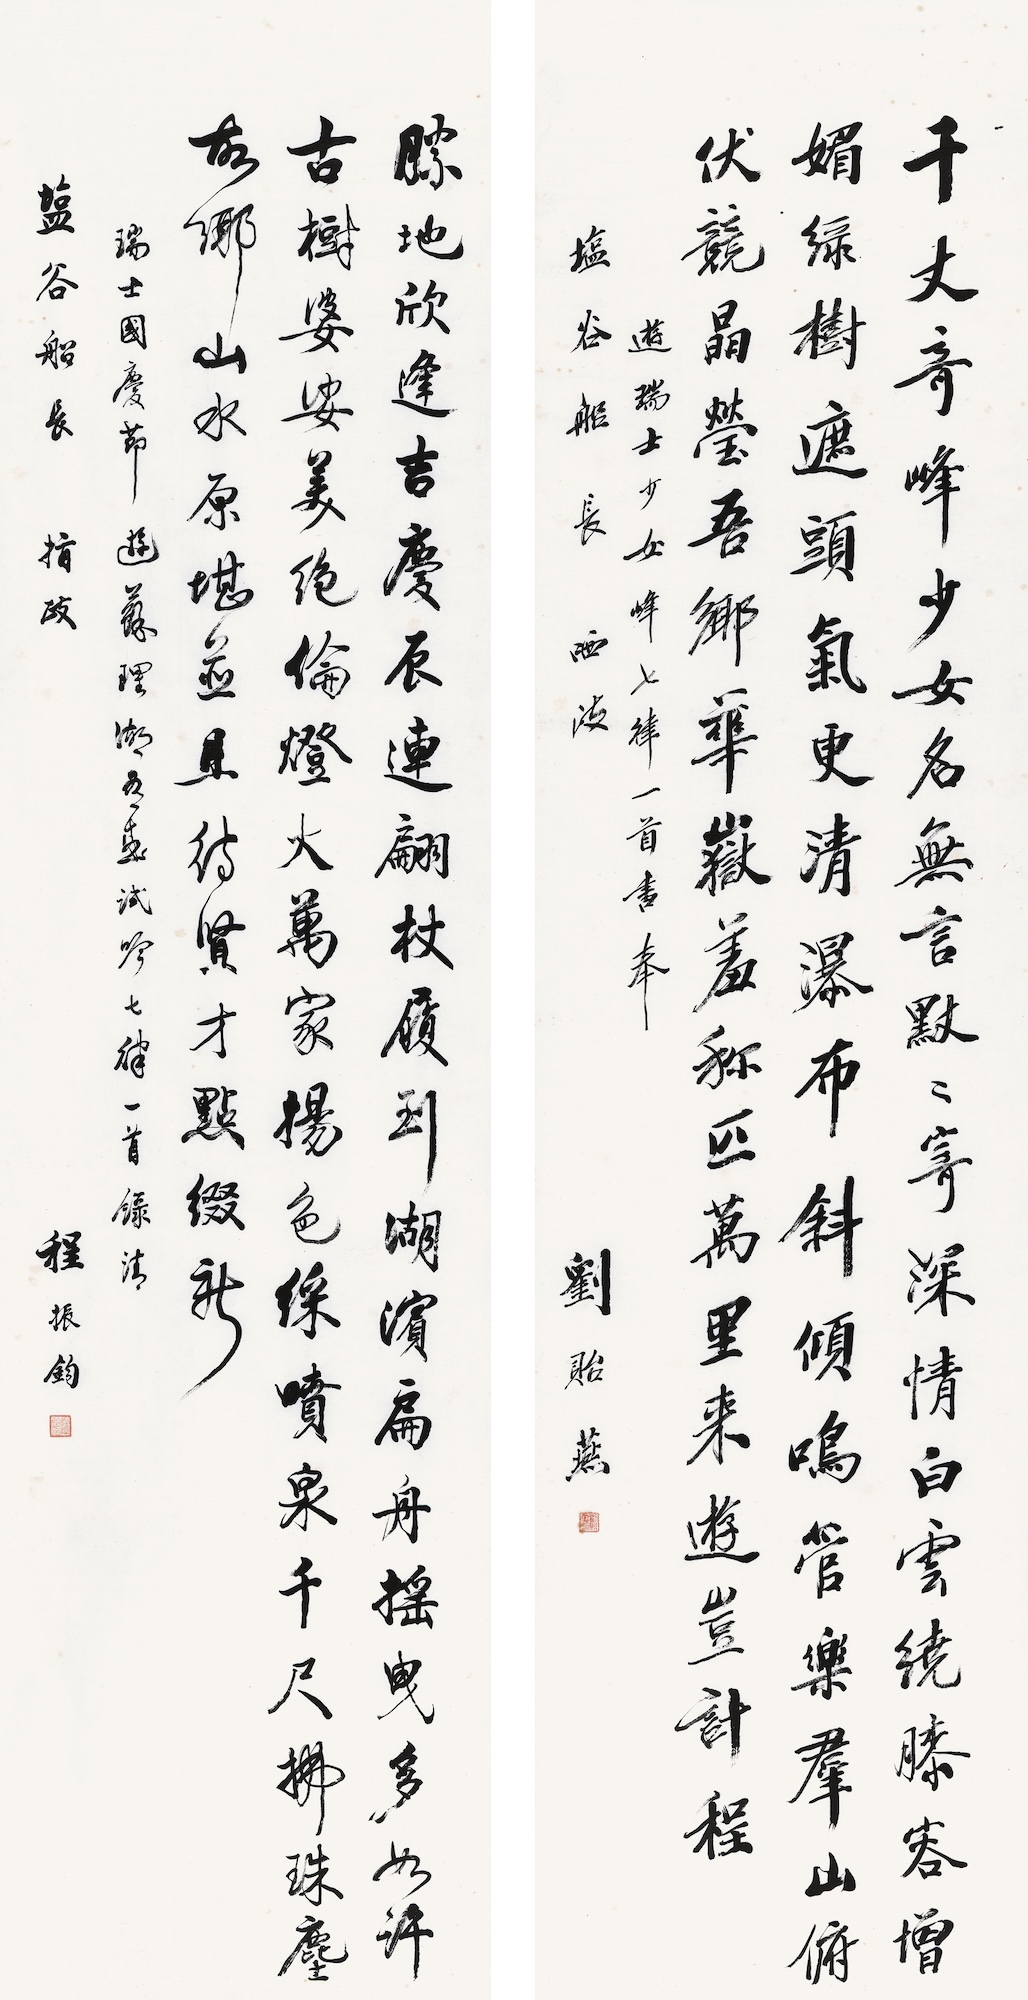 千丈奇峰少女名無言默〻寄深情白雲繞膝容增
媚綠樹遮頭氣更清瀑布斜傾鳴管樂羣山俯
伏競晶瑩吾鄉華嶽羞称匹萬里来遊豈計程
遊瑞士少女峰七律一首書奉
塩谷船長 哂政
劉貽燕
勝地欣逢吉慶辰連翩杖履到湖濱扁舟搖曳多如許
古樹婆娑美絕倫燈火萬家揚色綵噴泉千尺拂珠塵
故鄉山水原堪並且待賢才點綴新
瑞士國慶節遊蘇理湖有感試吟七律一首錄請
塩谷船長 指政
程振鈞